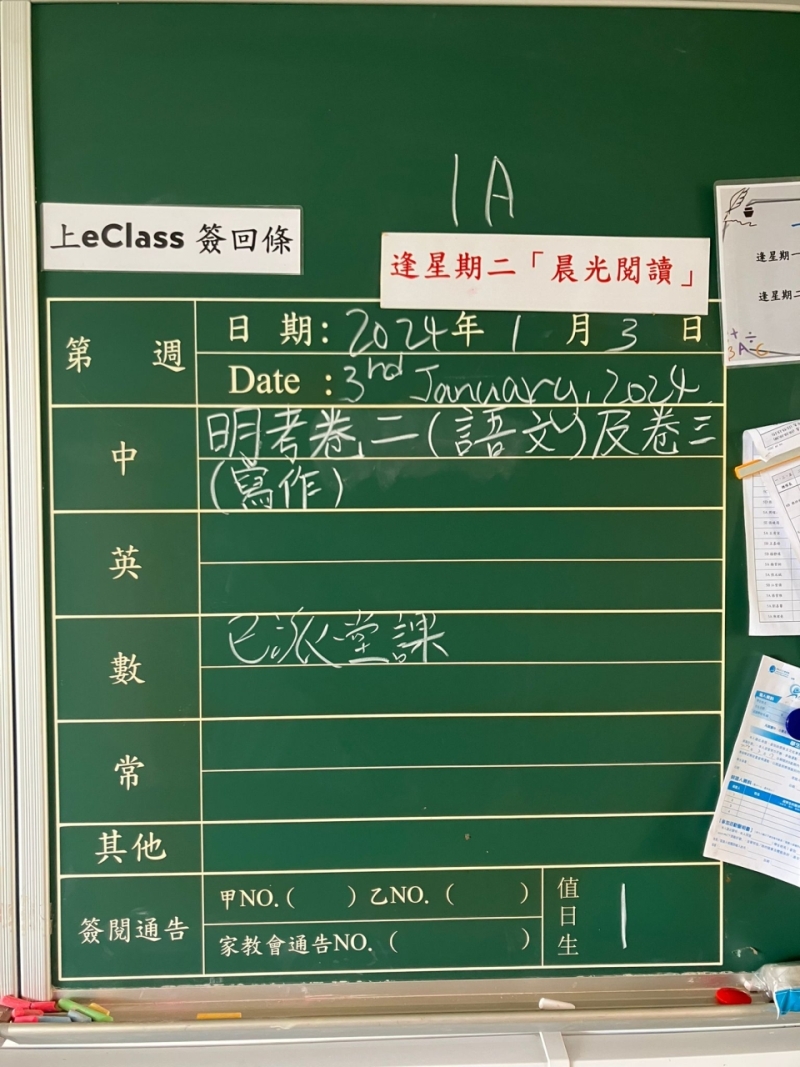 1A
上eClass 簽回條
逢星期二「晨光閱讀」
逢星期一
逢星期二
第 週
日 期: 2024年 1 月 3 日
Date : 3rd January, 2024
中
明考卷二(語文)及卷三
(寫作)
英
數
已派堂課
常
其他
簽閱通告
甲NO.( )乙NO. ( )
家教會通告NO. ( )
值日生
1